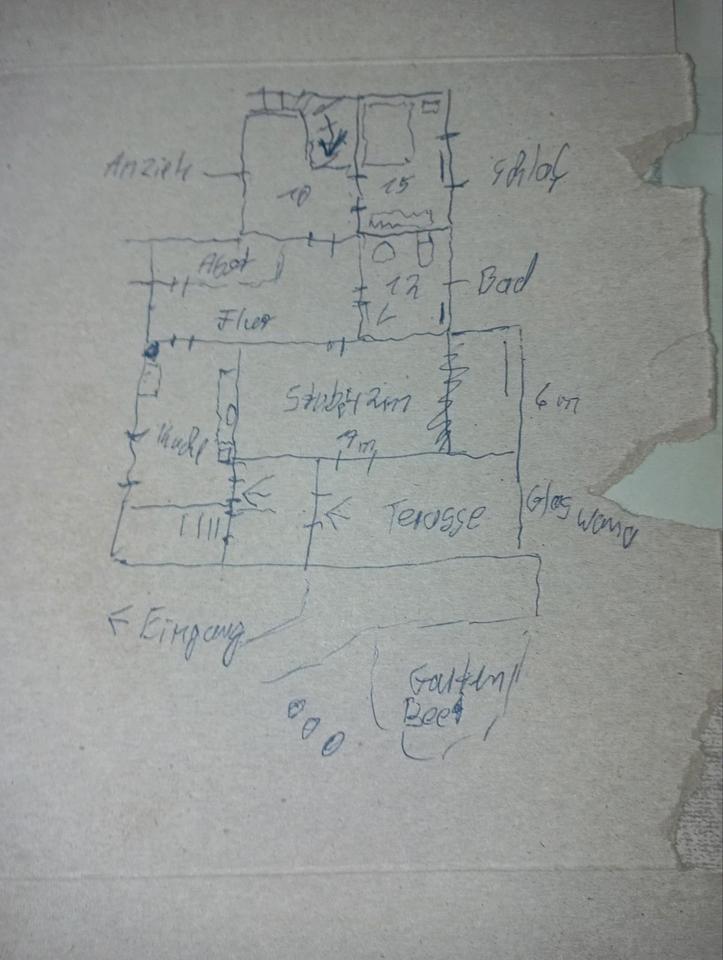 Anziehe
10
15
Schlaf
Abst
12
Bad
Flur
6 m
Küche
9 m
Terasse
Glas Wand
← Eingang
Garten
Beet